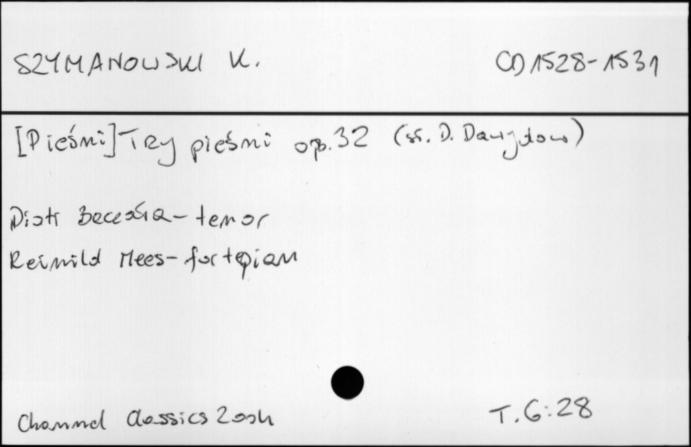 SZYMANOWSKI K. CD 1528-1531
[Pieśni] Trzy pieśni op. 32 (sł. D. Dawydow)
Piotr Beczała - tenor
Reinild Mees - fortepian
Channel Classics 2004 T. 6:28